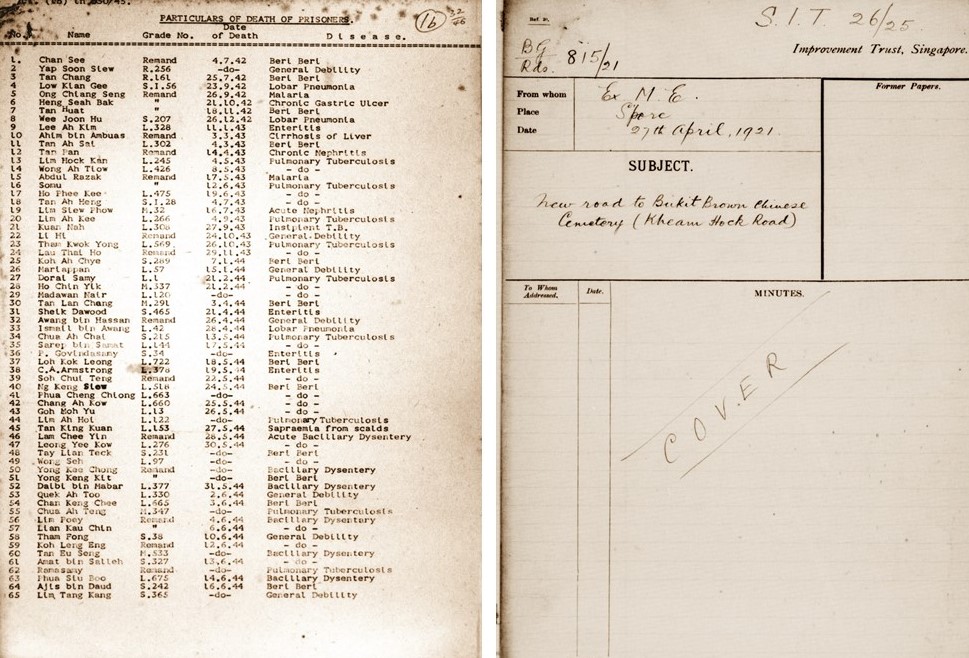 PARTICULARS OF DEATH OF PRISONERS.
16
32/46
No. Name Grade No. Date of Death Disease.
1. Chan See Remand 4.7.42 Beri Beri
2 Yap Soon Siew R.256 -do- General Debility
3 Tan Chang R.161 25.7.42 Beri Beri
4 Low Kian Gee S.1.56 23.9.42 Lobar Pneumonia
5 Ong Chiang Seng Remand 26.9.42 Malaria
6 Heng Seah Bak " 21.10.42 Chronic Gastric Ulcer
7 Tan Huat " 18.11.42 Beri Beri
8 Wee Joon Hu S.207 26.12.42 Lobar Pneumonia
9 Lee Ah Kim L.328 11.1.43 Enteritis
10 Ahim bin Ambuas Remand 3.3.43 Cirrhosis of Liver
11 Tan Ah Sai L.302 4.3.43 Beri Beri
12 Tan Pan Remand 14.4.43 Chronic Nephritis
13 Lim Hock Kan L.245 4.5.43 Pulmonary Tuberculosis
14 Wong Ah Tiow L.426 8.5.43 - do -
15 Abdul Razak Remand 17.5.43 Malaria
16 Somu " 12.6.43 Pulmonary Tuberculosis
17 Ho Phee Kee L.475 19.6.43 - do -
18 Tan Ah Heng S.1.28 4.7.43 - do -
19 Lim Siew Phow M.32 16.7.43 Acute Nephritis
20 Lim Ah Kee L.266 4.9.43 Pulmonary Tuberculosis
21 Kuan Nah L.308 27.9.43 Insipient T.B.
22 Li Hi Remand 24.10.43 General Debility
23 Tham Kwok Yong L.569 26.10.43 Pulmonary Tuberculosis
24 Lau Thai Ho Remand 29.11.43 - do -
25 Koh Ah Chye S.289 7.1.44 Beri Beri
26 Mariappan L.57 15.1.44 General Debility
27 Dorai Samy L.1 21.2.44 Pulmonary Tuberculosis
28 Ho Chin Yik M.337 21.2.44 - do -
29 Madawan Nair L.120 -do- - do -
30 Tan Lan Chang M.291 3.4.44 Beri Beri
31 Sheik Dawood S.465 21.4.44 Enteritis
32 Awang bin Hassan Remand 26.4.44 General Debility
33 Ismail bin Awang L.42 28.4.44 Lobar Pneumonia
34 Chua Ah Chai S.215 13.5.44 Pulmonary Tuberculosis
35 Sarep bin L.144 17.5.44 - do -
36 P. Govindasamy S.34 -do- Enteritis
37 Loh Kok Leong L.722 18.5.44 Beri Beri
38 C.A.Armstrong L.378 19.5.44 Enteritis
39 Soh Chui Teng Remand 22.5.44 - do -
40 Ng Keng Siew L.518 24.5.44 Beri Beri
41 Phua Cheng Chiong L.663 -do- - do -
42 Chang Ah Kow L.660 25.5.44 - do -
43 Goh Moh Yu L.13 26.5.44 - do -
44 Lim Ah Hoi L.122 -do- Pulmonary Tuberculosis
45 Tan King Kuan L.153 27.5.44 Sapraemia from scalds
46 Lam Chee Yin Remand 28.5.44 Acute Bacillary Dysentery
47 Leong Yee Kow L.276 30.5.44 - do -
48 Tay Lian Teck S.231 -do- Beri Beri
49 Wong Seh L.97 -do- - do -
50 Yong Kee Chong Remand -do- Bacillary Dysentery
51 Yong Keng Kit " -do- Beri Beri
52 Daibi bin Mabar L.377 31.5.44 Bacillary Dysentery
53 Quek Ah Too L.330 2.6.44 General Debility
54 Chan Keng Chee L.665 3.6.44 Beri Beri
55 Chua Ah Teng M.347 -do- Pulmonary Tuberculosis
56 Lim Poey Remand 4.6.44 Bacillary Dysentery
57 Lian Kau Chin " 6.6.44 - do -
58 Tham Fong S.38 10.6.44 General Debility
59 Koh Leng Eng Remand 12.6.44 - do -
60 Tan Eu Seng M.533 -do- Bacillary Dysentery
61 Amat bin Salleh S.327 13.6.44 - do -
62 Ramasamy Remand -do- Pulmonary Tuberculosis
63 Phua Siu Boo L.675 14.6.44 Bacillary Dysentery
64 Ajis bin Daud S.242 16.6.44 Beri Beri
65 Lim Tang Kang S.365 -do- General Debility
S.I.T. 26/25
BG Rds. 815/21
Improvement Trust, Singapore.
From whom Ex M.E.
Place Spore
Date 27th April, 1921.
Former Papers.
SUBJECT.
New road to Bukit Brown Chinese
Cemetery (Kheam Hock Road)
To Whom Addressed.
Date.
MINUTES.
COVER